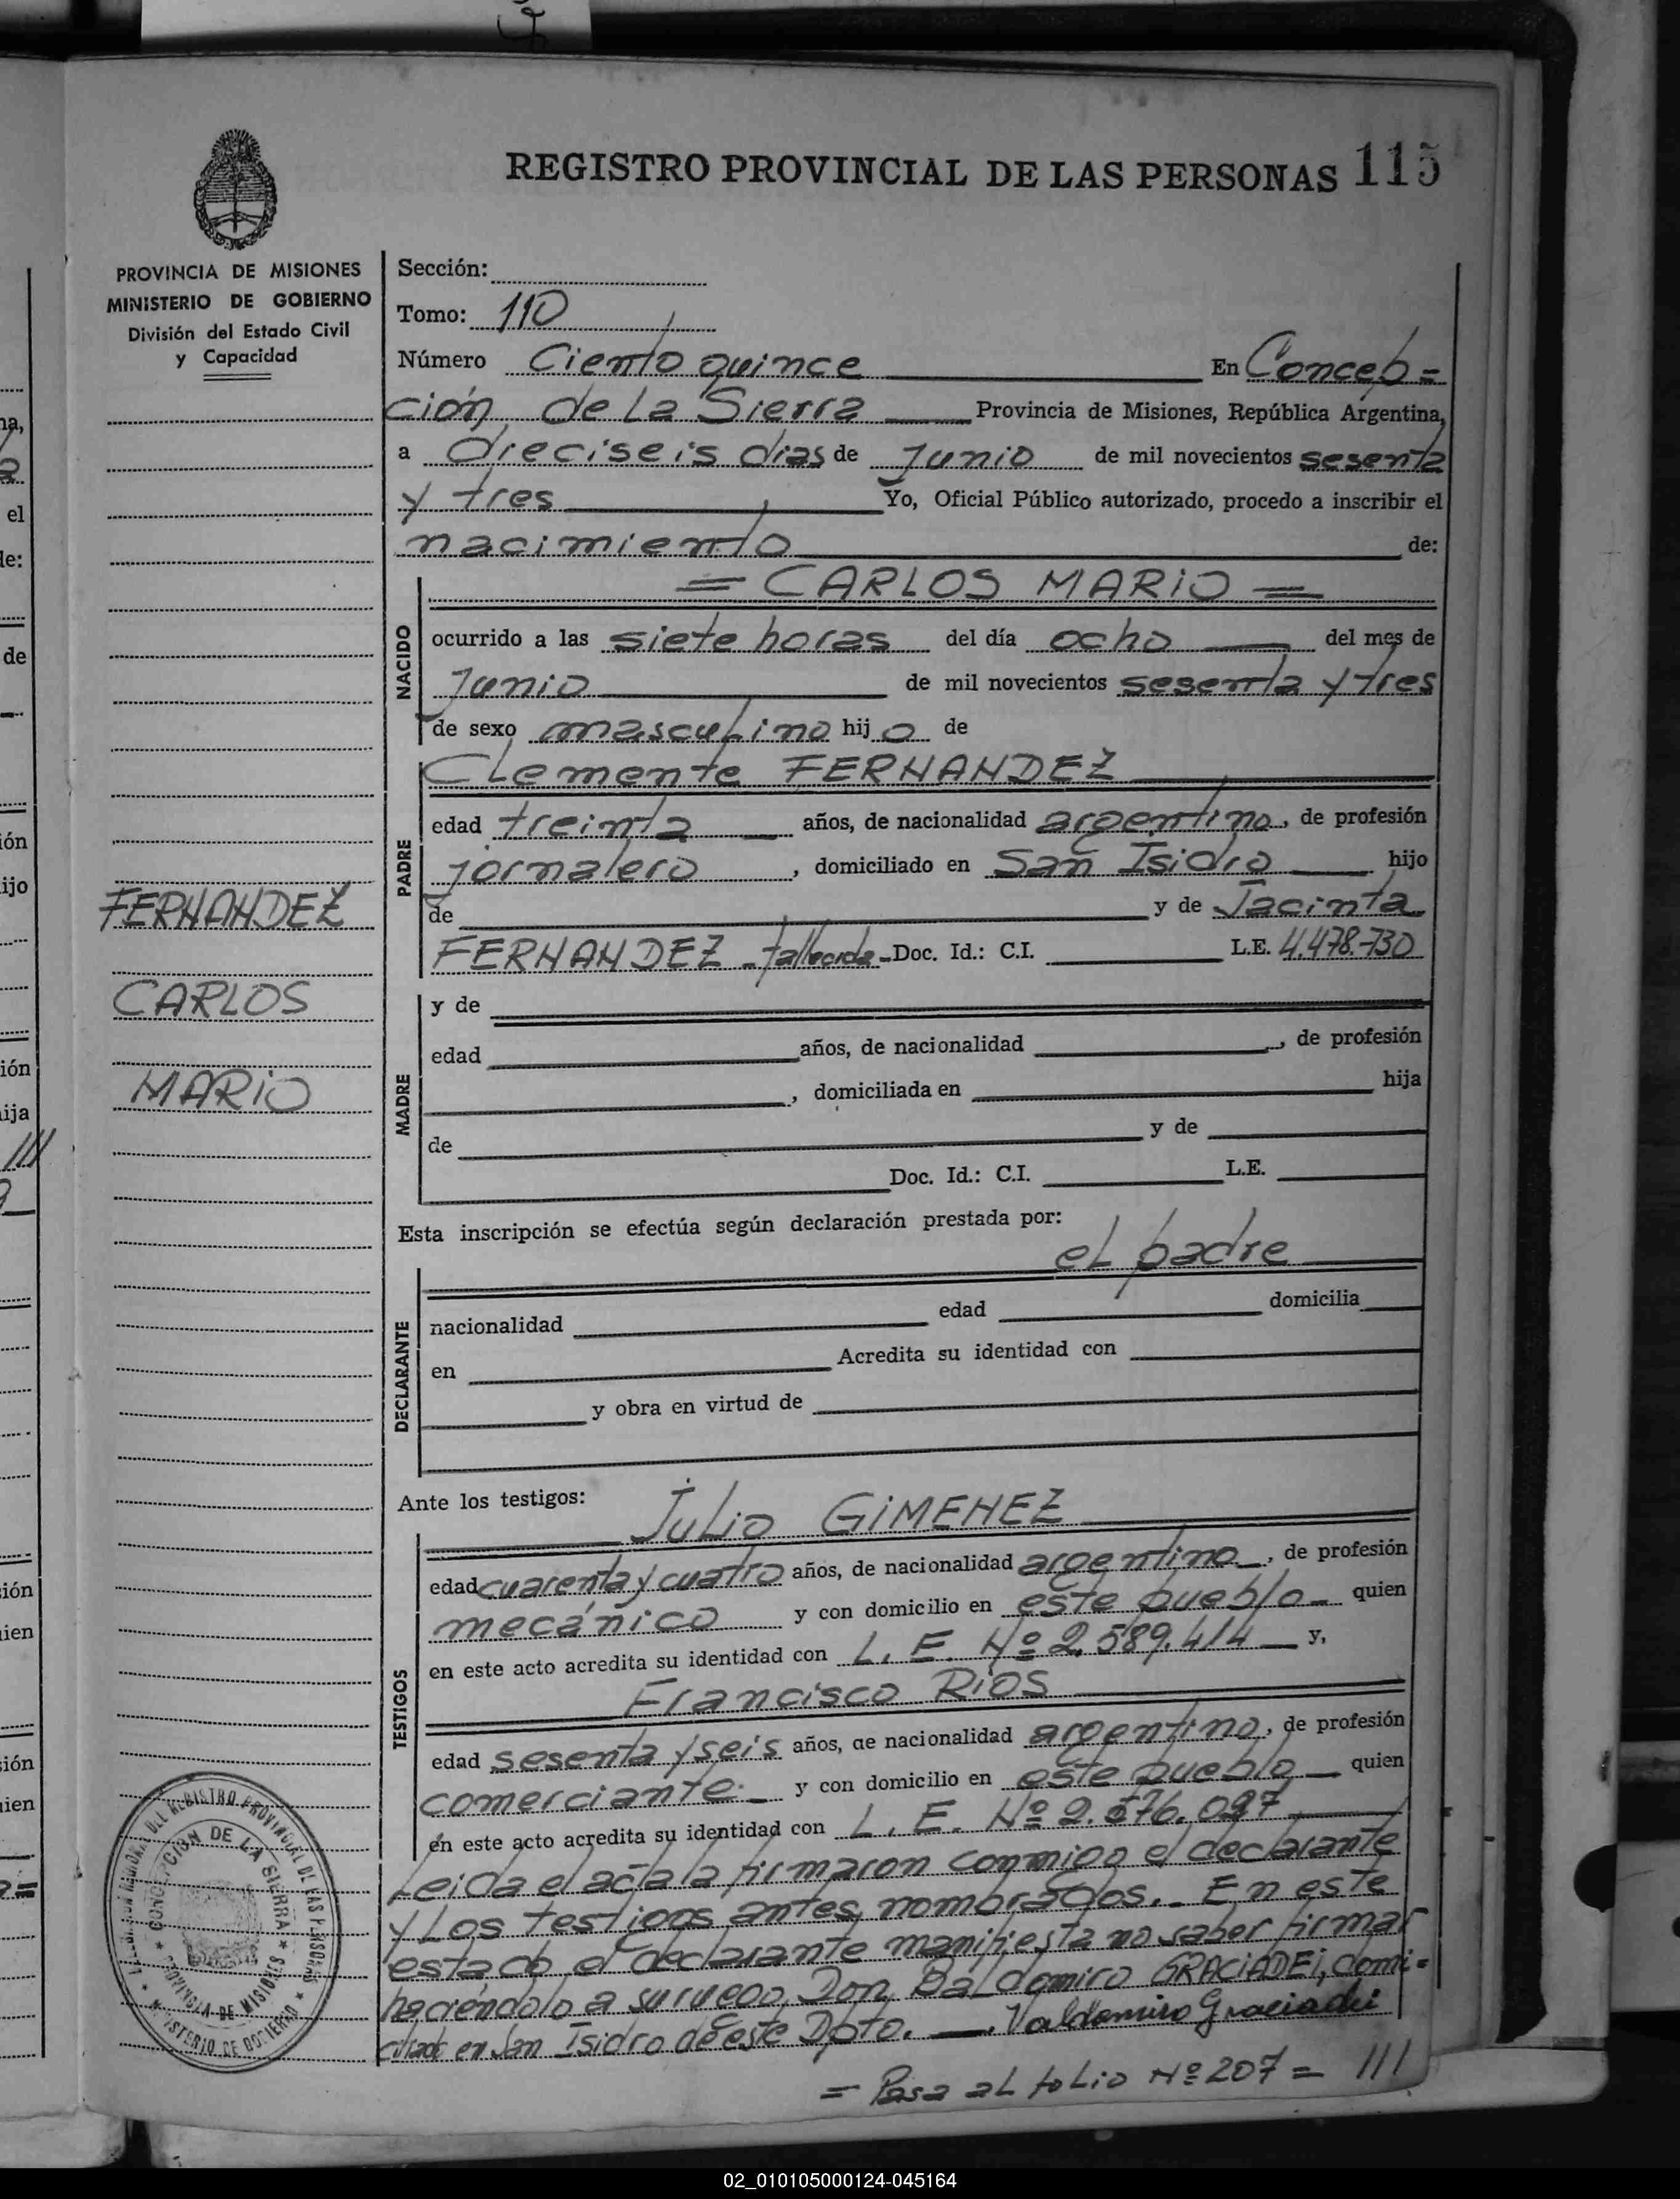 REGISTRO PROVINCIAL DE LAS PERSONAS 115
PROVINCIA DE MISIONES
MINISTERIO DE GOBIERNO
División del Estado Civil
y Capacidad
Sección:
Tomo: 110
Número Ciento quince En Concep=
ción de La Sierra Provincia de Misiones, República Argentina,
a dieciseis dias de Junio de mil novecientos sesenta
y tres Yo, Oficial Público autorizado, procedo a inscribir el
nacimiento de:
NACIDO
= CARLOS MARIO =
ocurrido a las siete horas del día ocho del mes de
Junio de mil novecientos sesenta y tres
de sexo masculino hijo de
PADRE
Clemente FERNANDEZ
edad treinta años, de nacionalidad argentino, de profesión
jornalero, domiciliado en San Isidro hijo
de y de Jacinta
FERNANDEZ -fallecida- Doc. Id.: C.I. L.E. 4.478.730
FERNANDEZ
CARLOS
MARIO
MADRE
y de
edad años, de nacionalidad , de profesión
, domiciliada en hija
de y de
Doc. Id.: C.I. L.E.
Esta inscripción se efectúa según declaración prestada por:
el padre
DECLARANTE
nacionalidad edad domicilia
en Acredita su identidad con
y obra en virtud de
Ante los testigos:
Julio GIMENEZ
TESTIGOS
edad cuarenta y cuatro años, de nacionalidad argentino, de profesión
mecánico y con domicilio en este pueblo- quien
en este acto acredita su identidad con L. E. Nº 2.589.414 y,
Francisco RIOS
edad sesenta y seis años, de nacionalidad argentino, de profesión
comerciante.- y con domicilio en este pueblo quien
en este acto acredita su identidad con L. E. Nº 2.576.097
Leida el acta la firmaron conmigo el declarante
y Los testigos antes nombrados.- En este
estado el declarante manifiesta no saber firmar
haciéndolo a su ruego Don BaLdomiro GRACIADEI, domi=
ciliado en San Isidro de este Dpto. Valdomiro Graciadei
= Pasa al folio Nº 207 = ///
DEL REGISTRO PROVINCIAL DE LAS PERSONAS
CONCEPCION DE LA SIERRA
PROVINCIA DE MISIONES
MINISTERIO DE GOBIERNO
02_010105000124-045164